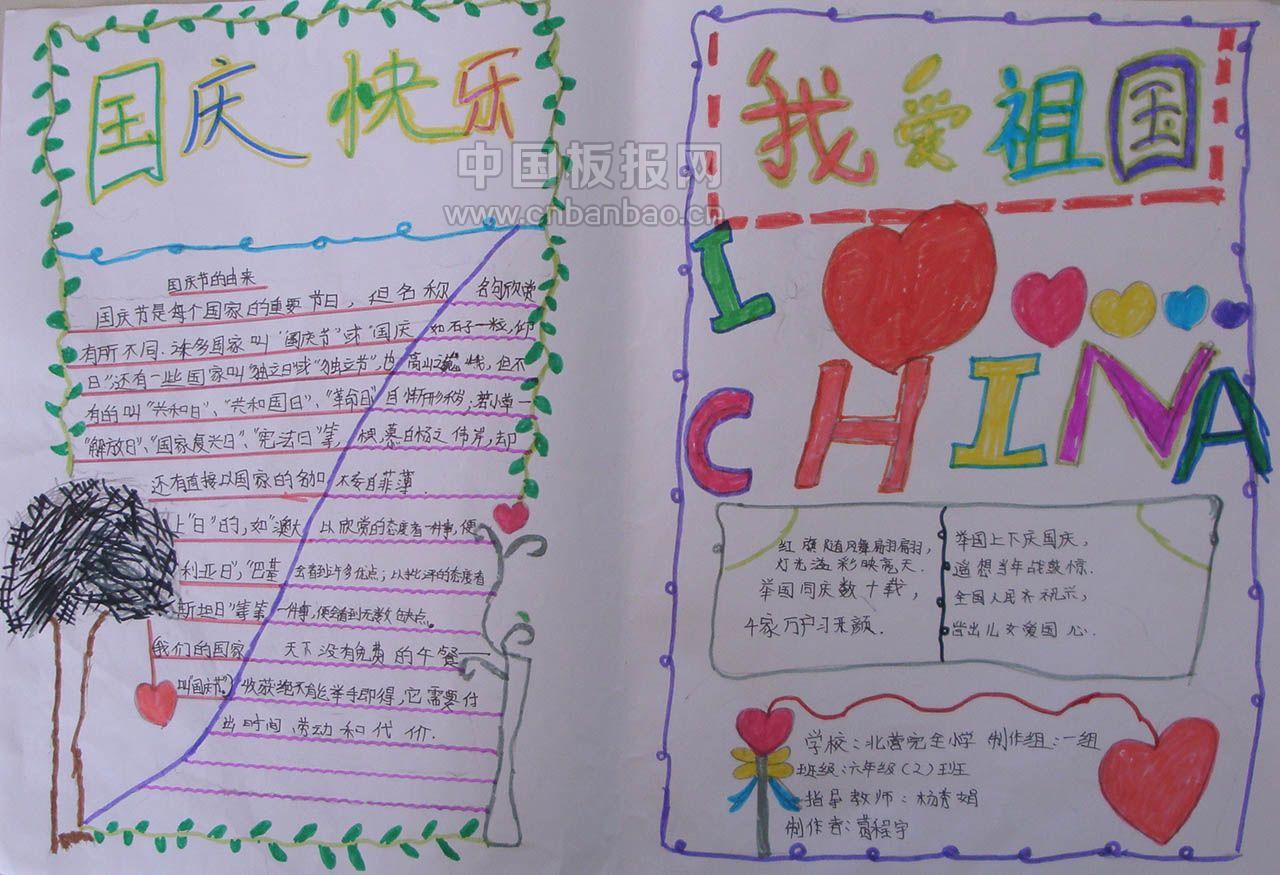 国庆 快乐
国庆节的由来
国庆节是每个国家的重要节日，但名称
有所不同.许多国家叫"国庆节"或"国庆
日"还有一些国家叫"独立日"或"独立节",也
有的叫"共和日"、"共和国日"、"革命日"
"解放日"、"国家复兴日"、"宪法日"等,
还有直接以国家的名加
上"日"的,如"澳大
利亚日","巴基
斯坦日"等等
我们的国家
叫"国庆节".
名句欣赏
如石子一粒,仰
高山之巍峨,但不
自惭形秽;若小草一
棵,慕白杨之伟岸,却
不妄自菲薄.
以欣赏的态度看一件事,便
会看到许多优点;以批评的态度看
一件事,便会看到无数缺点。
天下没有免费的午餐——
收获绝不能举手即得,它需要付
出时间、劳动和代价.
中国板报网
www.cnbanbao.cn
我爱祖国
I
CHINA
红旗随风舞翩翩,
灯光溢彩映亮天.
举国同庆数十载,
万户习
举国上下庆国庆,
遥想当年战鼓惊.
全国人民齐
儿女爱国心.
学校:北营完全小学 制作组:一组
班级:六年级(2)班
指导教师:杨秀娟
制作者:葛程宇